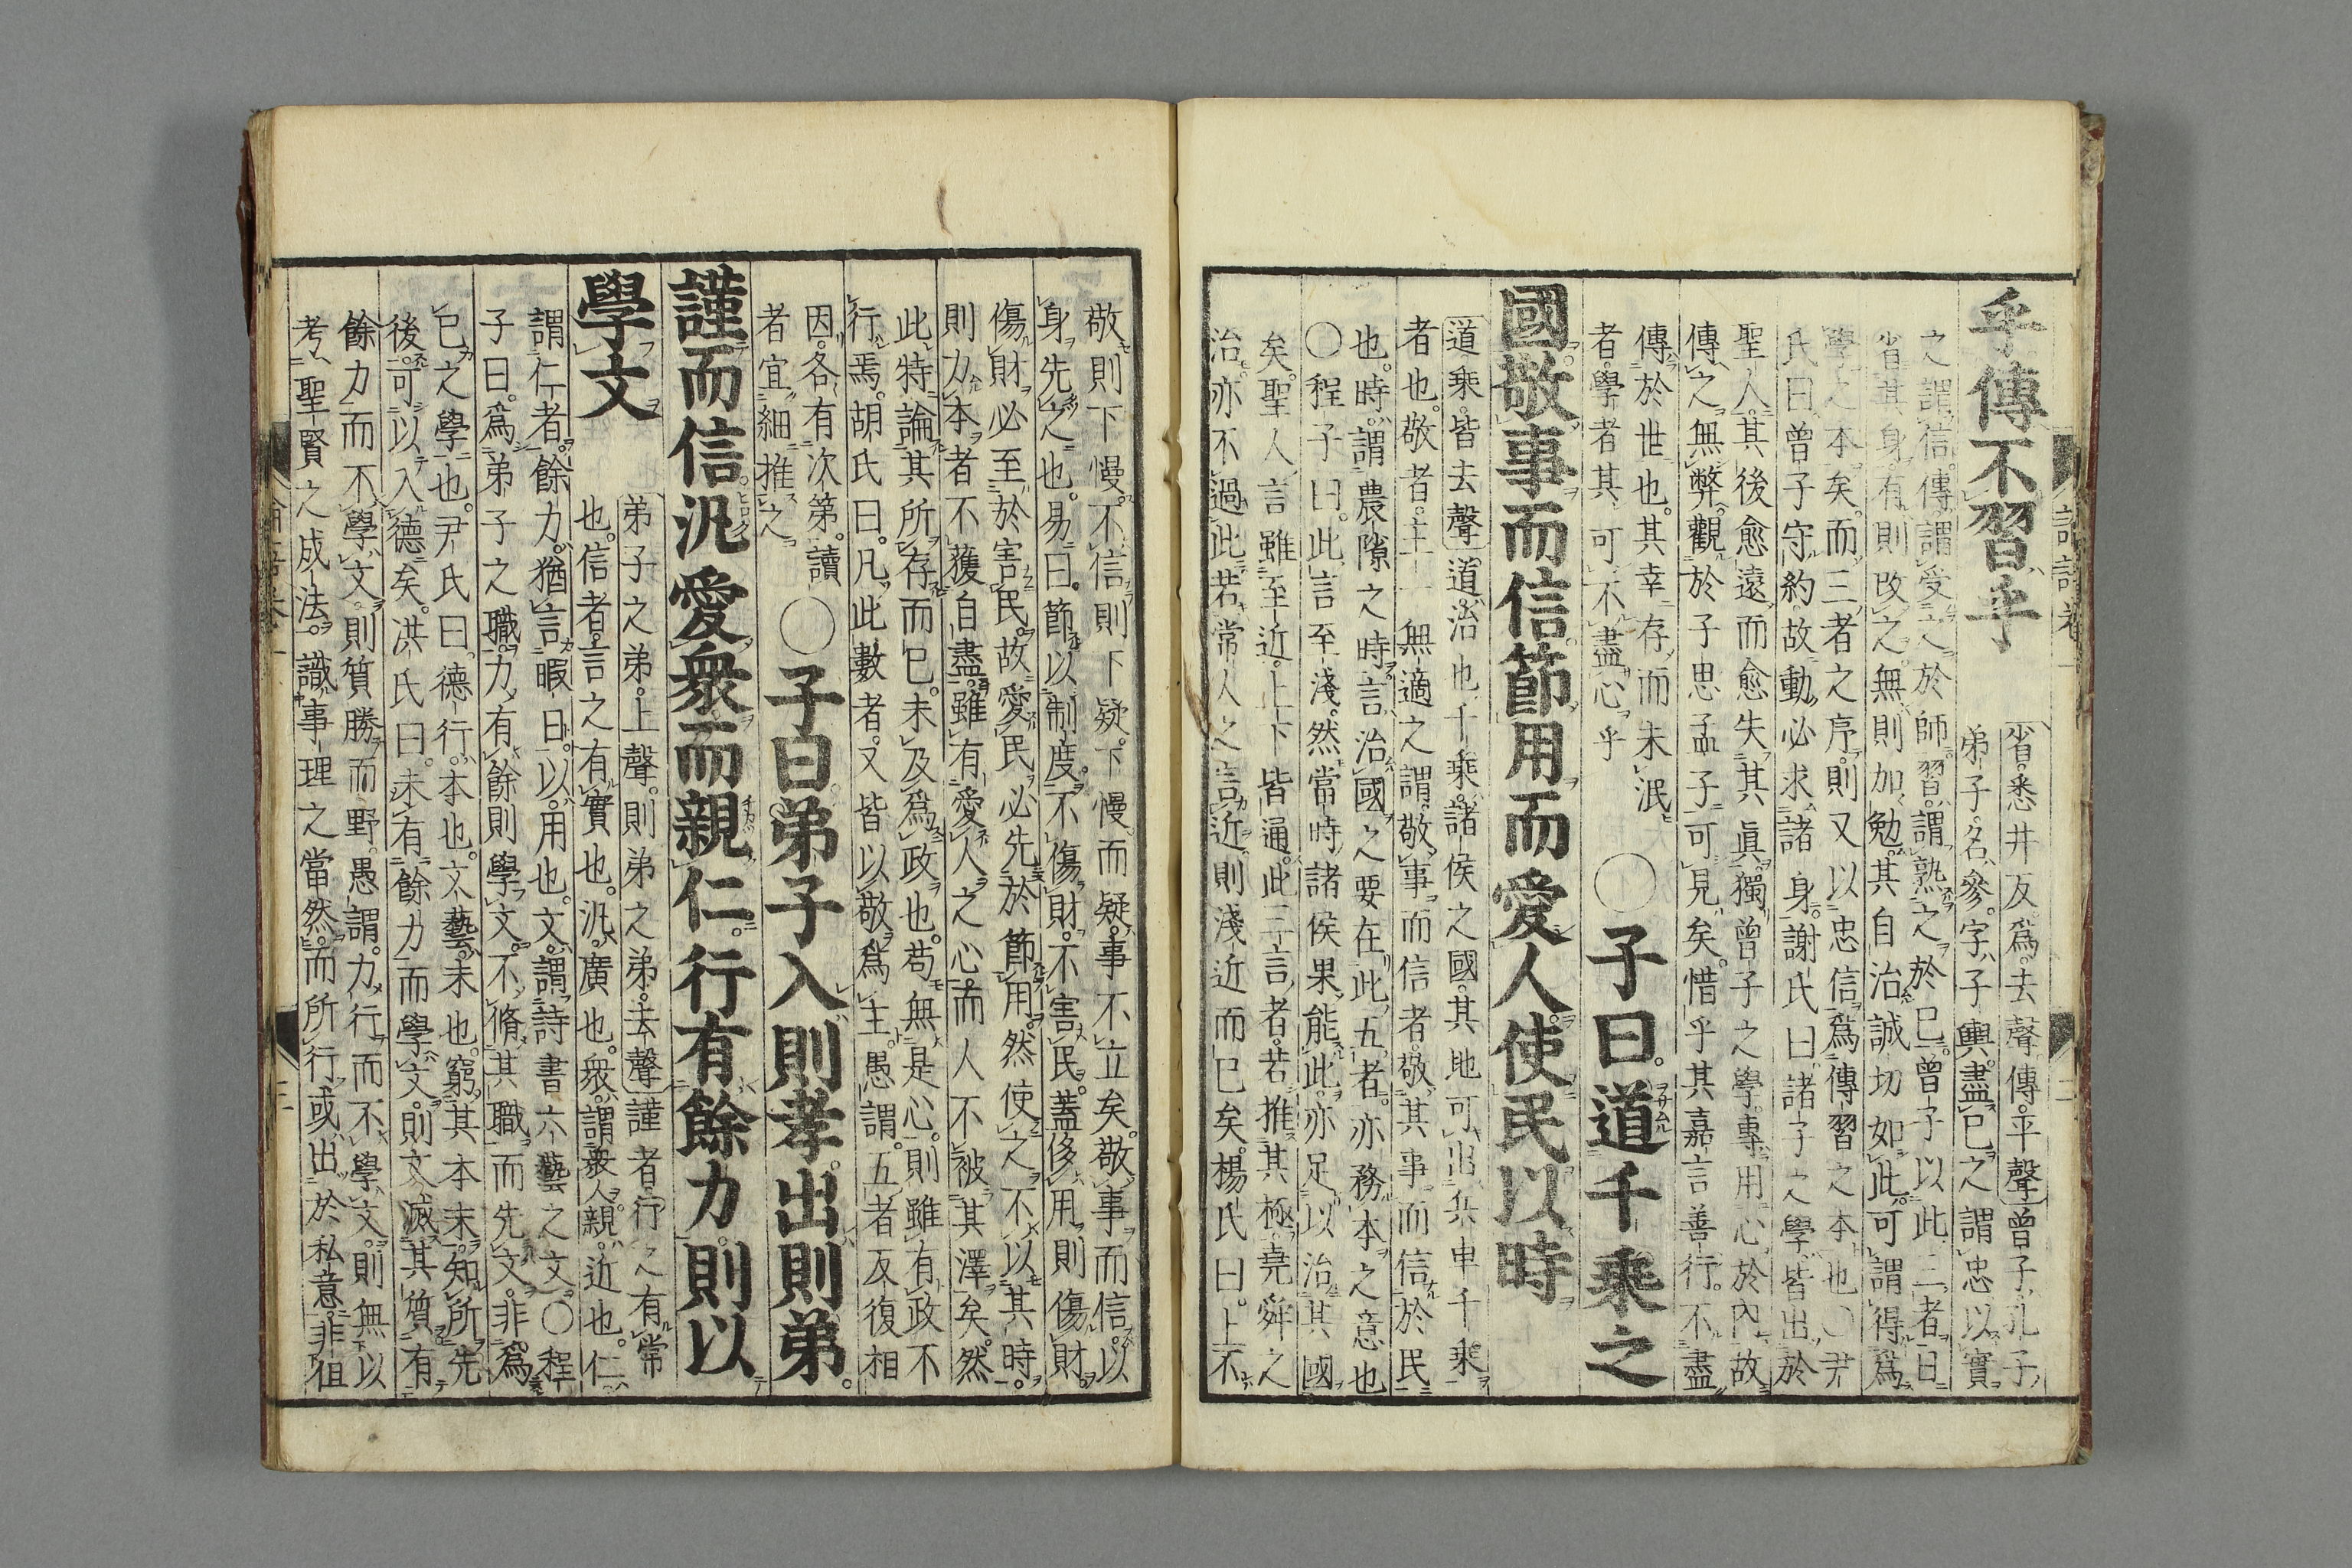 乎傳不習乎
省悉井反爲去聲傳平聲曾子孔子
弟子名參字子輿盡已之謂忠以實
之謂信傳謂受之於師習謂熟之於已曾子以此三者日
省其身有則改之無則加勉其自治誠切如此可謂得爲
學之本矣而三者之序則又以忠信爲傳習之本也○尹
氏曰曾子守約故動必求諸身謝氏曰諸子之學皆出於
聖人其後愈遠而愈失其眞獨曾子之學專用心於内故
傳之無弊觀於子思孟子可見矣惜乎其嘉言善行不盡
傳於世也其幸存而未泯
者學者其可不盡心乎
○子曰道千乘之
國敬事而信節用而愛人使民以時
道乘皆去聲道治也千乘諸侯之國其地可出兵車千乘
者也敬者主一無適之謂敬事而信者敬其事而信於民
也時謂農隙之時言治國之要在此五者亦務本之意也
○程子曰此言至淺然當時諸侯果能此亦足以治其國
矣聖人言雖至近上下皆通此三言者若推其極堯舜之
治亦不過此若常人之言近則淺近而已矣楊氏曰上不
敬則下慢不信則下疑下慢而疑事不立矣敬事而信以
身先之也易曰節以制度不傷財不害民蓋侈用則傷財
傷財必至於害民故愛民必先於節用然使之不以其時
則力本者不獲自盡雖有愛人之心而人不被其澤矣然
此特論其所存而已未及爲政也苟無是心則雖有政不
行焉胡氏曰凡此數者又皆以敬爲主愚謂五者反復相
因各有次第讀
者宜細推之
○子曰弟子入則孝出則弟
謹而信汎愛衆而親仁行有餘力則以
學文
弟子之弟上聲則弟之弟去聲謹者行之有常
也信者言之有實也汎廣也衆謂衆人親近也仁
謂仁者餘力猶言暇日以用也文謂詩書六藝之文○程
子曰爲弟子之職力有餘則學文不脩其職而先文非爲
已之學也尹氏曰德行本也文藝末也窮其本末知所先
後可以入德矣洪氏曰未有餘力而學文則文滅其質有
餘力而不學文則質勝而野愚謂力行而不學文則無以
考聖賢之成法識事理之當然而所行或出於私意非徂